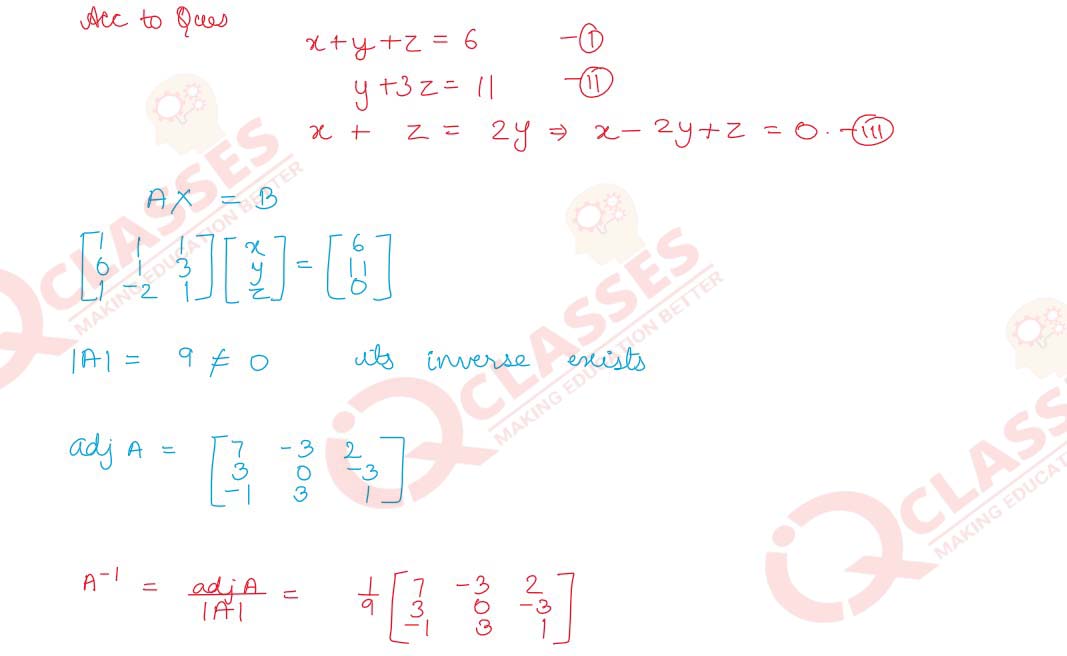 Acc to Ques
x+y+z = 6 -(i)
y+3z = 11 -(ii)
x + z = 2y ⇒ x-2y+z = 0. -(iii)
AX = B
[1 1 1; 0 1 3; 1 -2 1] [x; y; z] = [6; 11; 0]
|A| = 9 ≠ 0 its inverse exists
adj A = [7 -3 2; 3 0 -3; -1 3 1]
A⁻¹ = adjA/|A| = 1/9 [7 -3 2; 3 0 -3; -1 3 1]
IQ CLASSES
MAKING EDUCATION BETTER
IQ CLASSES
MAKING EDUCATION BETTER
IQ CLAS
MAKING EDUCAT